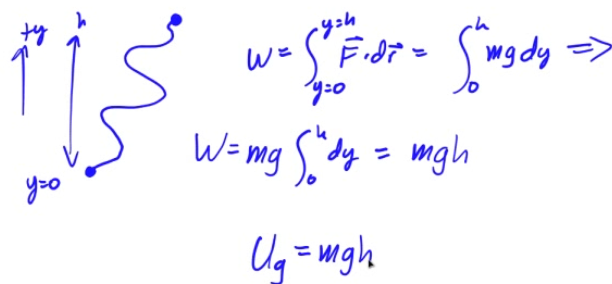 +y h
W = ∫_{y=0}^{y=h} F⃗·dr⃗ = ∫_0^h mg dy ⟹
W = mg ∫_0^h dy = mgh
y=0
U_g = mgh